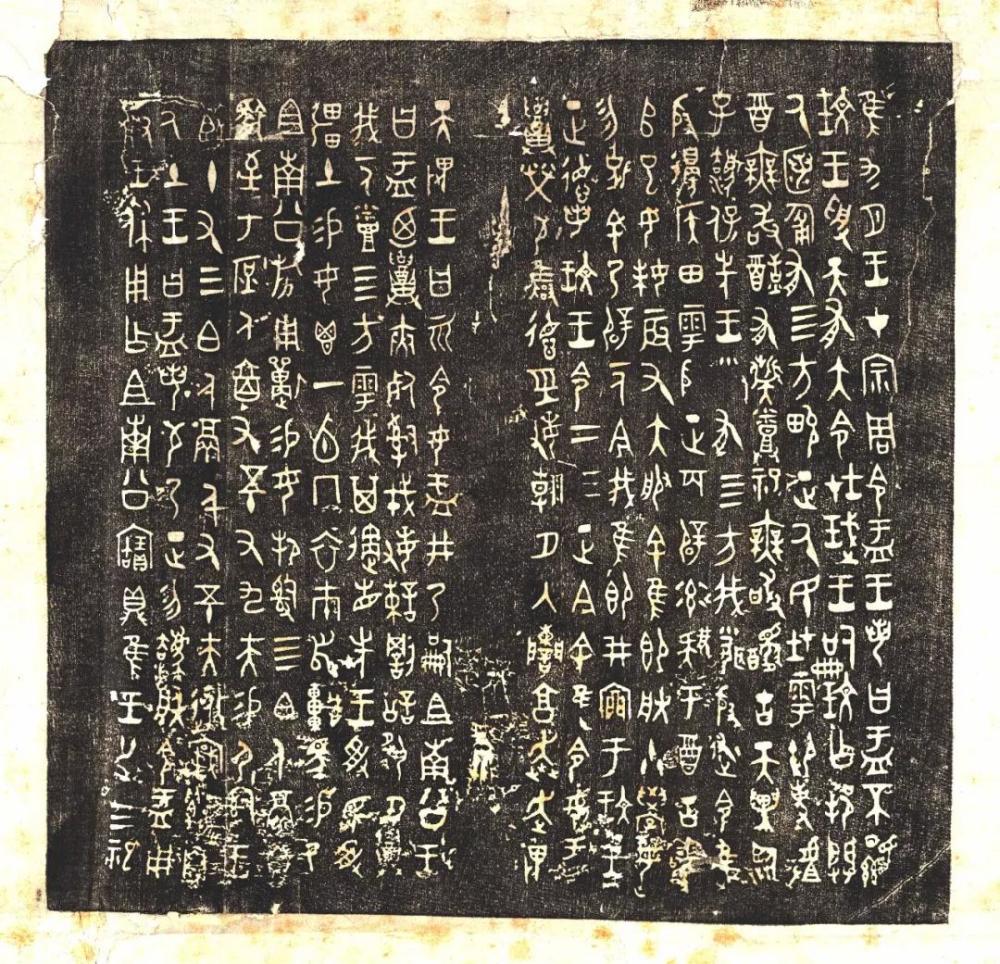 隹九月王才宗周令盂王若曰盂不顯
玟王受天有大令在珷王嗣玟乍邦闢
厥匿匍有四方畯正厥民在雩御事𠭯
酉無敢酖有祡烝祀無敢醻古天異臨
子灋保先王有四方我聞殷述令隹
殷邊侯田雩殷正百辟率肄于酉古喪
𠂤巳女妹辰又大服余隹即朕小學女
勿余乃辟一人今我隹即井于玟王
正德若玟王令二三正今余隹令女盂
召榮敬雝德巠敏朝夕入讕享奔走畏
天畏王曰而令女盂井乃嗣且南公王
曰盂廼召夾死司戎敏諫罰訟夙夕召
我一人烝四方雩我其遹省先王受民受
疆土易女鬯一卣冂衣巿舄車馬易乃
且南公旂用狩易女邦司四白人鬲自
馭至于庶人六百又五十又九夫易尸司王
臣十又三白人鬲千又五十夫自
厥土王曰盂若敬乃正勿灋朕令盂用
對王休用乍且南公寶鼎隹王廿又三祀